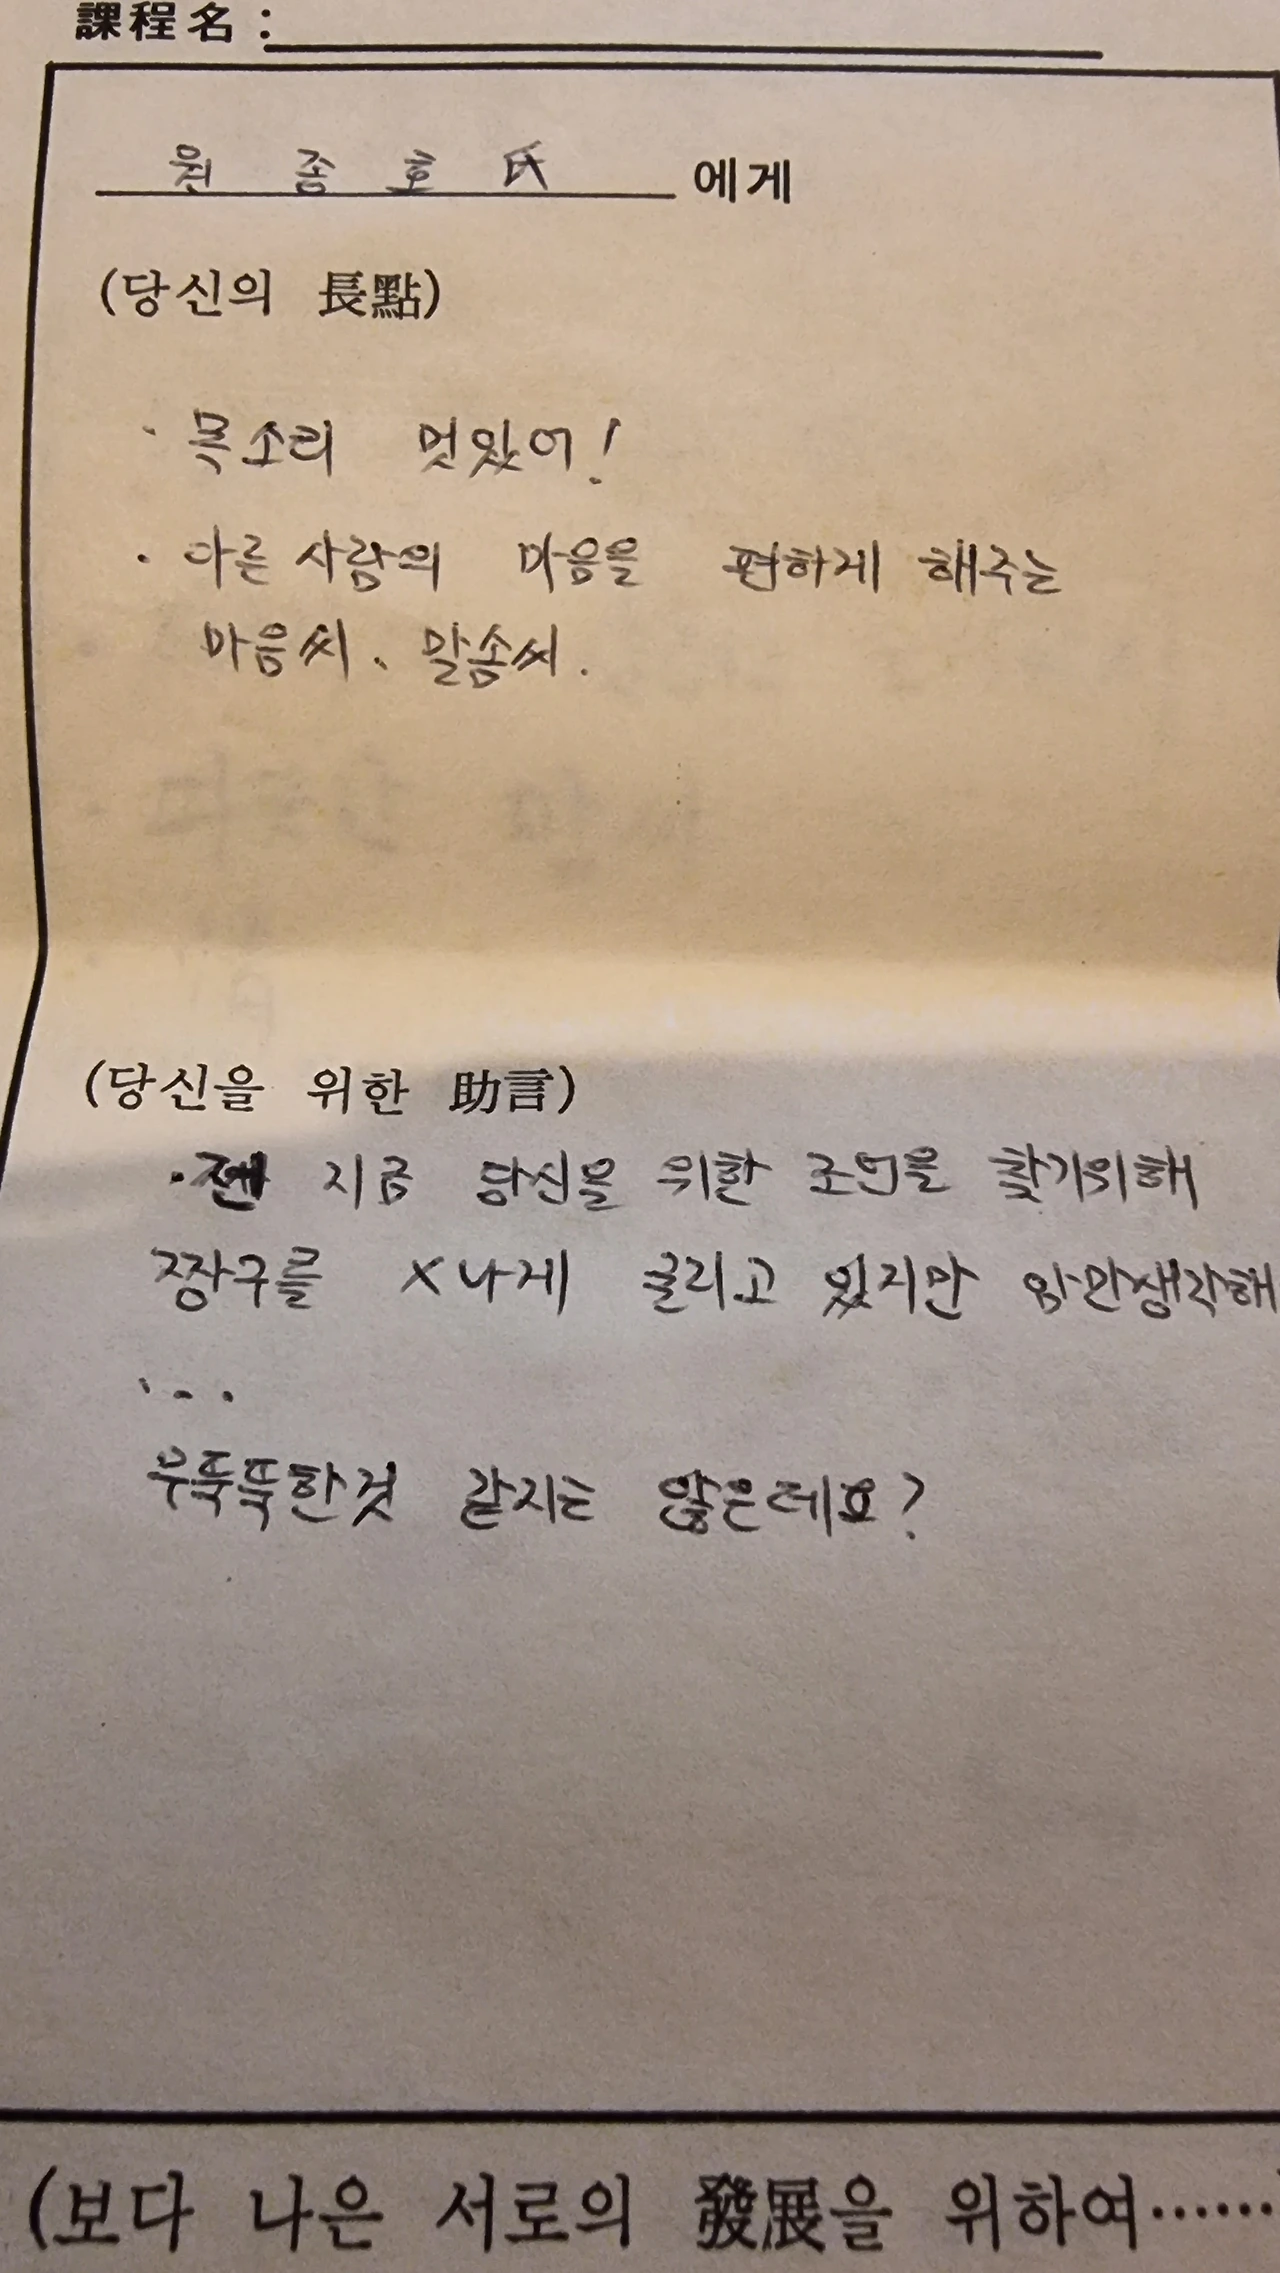 課程名 :
원 종 호 氏 에게
(당신의 長點)
· 목소리 멋있어!
· 다른 사람의 마음을 편하게 해주는
마음씨、말솜씨.
(당신을 위한 助言)
· 지금 당신을 위한 조언을 찾기위해
짱구를 X나게 굴리고 있지만 암만생각해
...
무뚝뚝한것 같지는 않은데요?
(보다 나은 서로의 發展을 위하여……